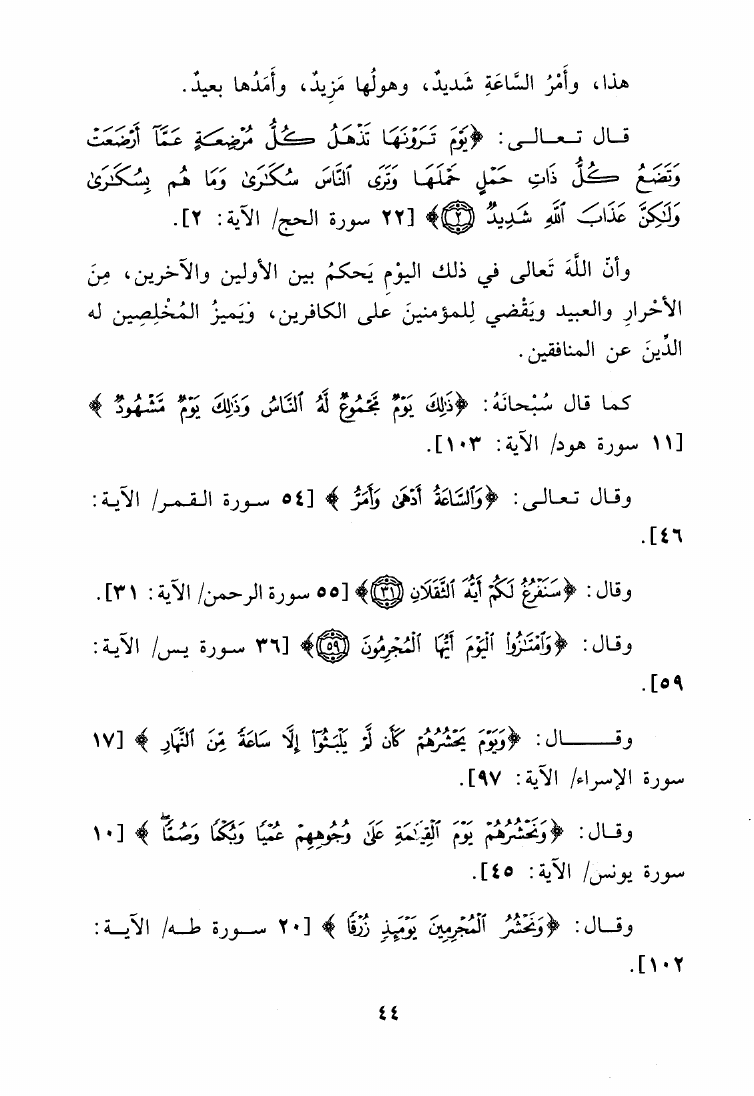 هذا، وأَمْرُ السَّاعَةِ شَديدٌ، وهولُها مَزيدٌ، وأَمَدُها بعيدٌ.
قـال تـعـالـى: ﴿يَوْمَ تَرَوْنَهَا تَذْهَلُ كُلُّ مُرْضِعَةٍ عَمَّآ أَرْضَعَتْ
وَتَضَعُ كُلُّ ذَاتِ حَمْلٍ حَمْلَهَا وَتَرَى ٱلنَّاسَ سُكَٰرَىٰ وَمَا هُم بِسُكَٰرَىٰ
وَلَٰكِنَّ عَذَابَ ٱللَّهِ شَدِيدٌ ۝٢﴾ [٢٢ سورة الحج/ الآية: ٢].
وأنّ اللَّهَ تَعالى في ذلك اليوْمِ يَحكمُ بين الأولين والآخرين، مِنَ
الأحْرارِ والعبيد ويَقْضي لِلمؤمنينَ على الكافرين، ويَميزُ المُخْلِصِين له
الدِّينَ عن المنافقين.
كما قال سُبْحانَهُ: ﴿ذَٰلِكَ يَوْمٌ مَّجْمُوعٌ لَّهُ ٱلنَّاسُ وَذَٰلِكَ يَوْمٌ مَّشْهُودٌ﴾
[١١ سورة هود/ الآية: ١٠٣].
وقـال تـعـالـى: ﴿وَٱلسَّاعَةُ أَدْهَىٰ وَأَمَرُّ﴾ [٥٤ سـورة الـقـمـر/ الآيـة:
٤٦].
وقال: ﴿سَنَفْرُغُ لَكُمْ أَيُّهَ ٱلثَّقَلَانِ ۝٣١﴾ [٥٥ سورة الرحمن/ الآية: ٣١].
وقـال: ﴿وَٱمْتَٰزُوا۟ ٱلْيَوْمَ أَيُّهَا ٱلْمُجْرِمُونَ ۝٥٩﴾ [٣٦ سـورة يـس/ الآيـة:
٥٩].
وقــــــال: ﴿وَيَوْمَ يَحْشُرُهُمْ كَأَن لَّمْ يَلْبَثُوٓا۟ إِلَّا سَاعَةً مِّنَ ٱلنَّهَارِ﴾ [١٧
سورة الإسراء/ الآية: ٩٧].
وقـال: ﴿وَنَحْشُرُهُمْ يَوْمَ ٱلْقِيَٰمَةِ عَلَىٰ وُجُوهِهِمْ عُمْيًا وَبُكْمًا وَصُمًّا﴾ [١٠
سورة يونس/ الآية: ٤٥].
وقـال: ﴿وَنَحْشُرُ ٱلْمُجْرِمِينَ يَوْمَئِذٍ زُرْقًا﴾ [٢٠ سـورة طـه/ الآيـة:
١٠٢].
٤٤